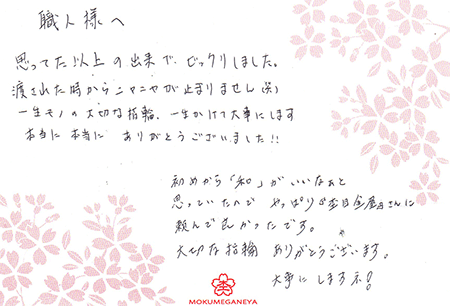 職人様へ
思ってた以上の出来で、ビックリしました。
渡された時からニヤニヤが止まりません(笑)
一生モノの大切な指輪、一生かけて大事にします
本当に本当に ありがとうございました!!
初めから「和」がいいなぁと
思っていたので やっぱり杢目金屋さんに
頼んで良かったです。
大切な指輪 ありがとうございます。
大事にしますネ!
MOKUMEGANEYA